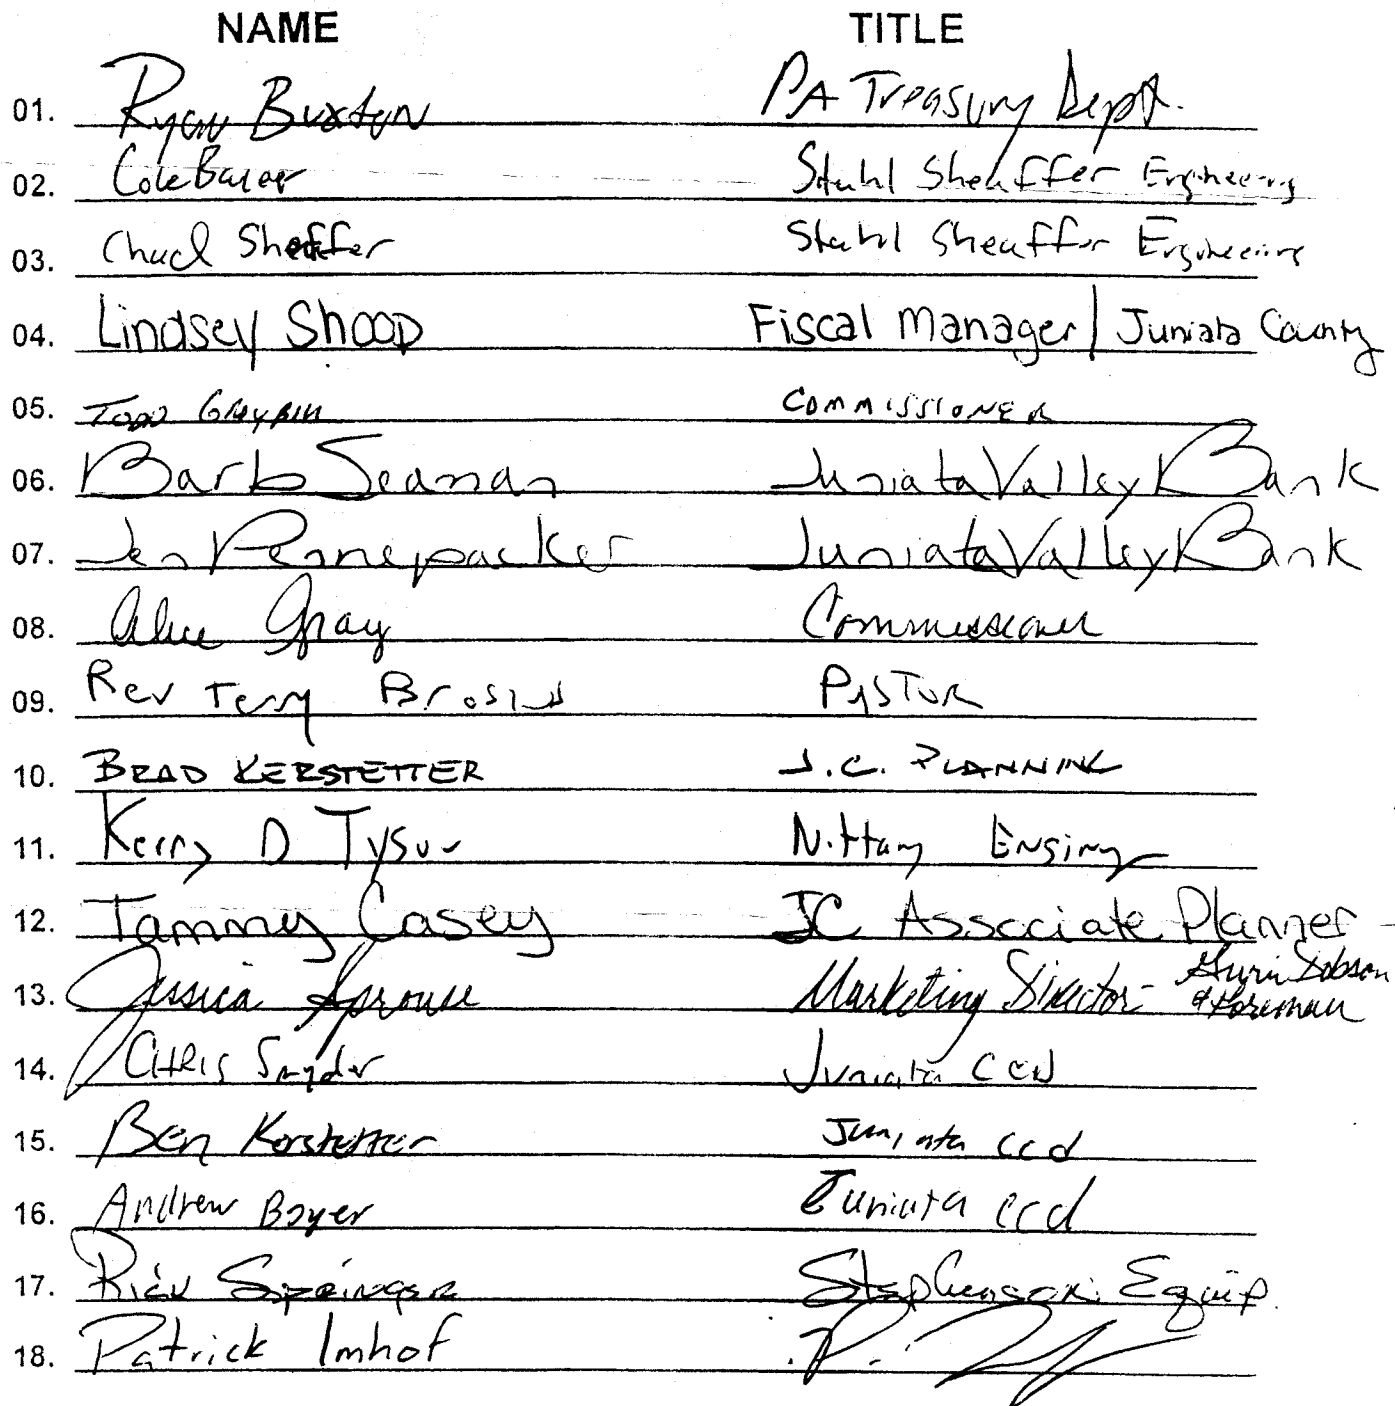 NAME TITLE
01. Ryan Buxton PA Treasury Dept.
02. Cole Stahl Sheaffer Engineering
03. Chad Sheaffer Stahl Sheaffer Engineering
04. Lindsey Shoop Fiscal Manager / Juniata County
05. TODD GRAYBILL COMMISSIONER
06. Barb Seaman Juniata Valley Bank
07. Jen Pennepacker Juniata Valley Bank
08. Alice Gray Commissioner
09. Rev Terry Brosius PASTOR
10. BRAD KERSTETTER J.C. PLANNING
11. Kerry D Tyson Nittany
12. Tammy Casey JC Associate Planner
13. Jessica Sprouse Marketing Director - Gwin Dobson
& Foreman
14. CHRIS Snyder Juniata CCD
15. Ben Kerstetter Juniata ccd
16. Andrew Boyer Juniata ccd
17. Rick Springer Stephenson Equip.
18. Patrick Imhof P.